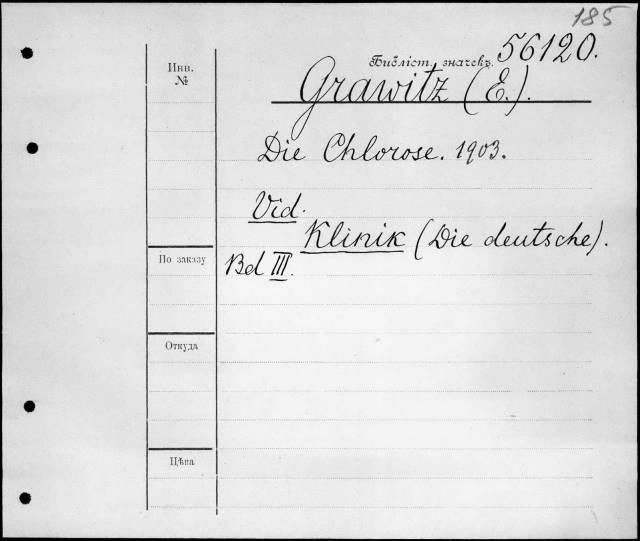 185
Инв.
№
Библіот. значекъ. 56120.
Grawitz (E.).
Die Chlorose. 1903.
Vid.
Klinik (Die deutsche).
По заказу
Bd III.
Откуда
Цѣна